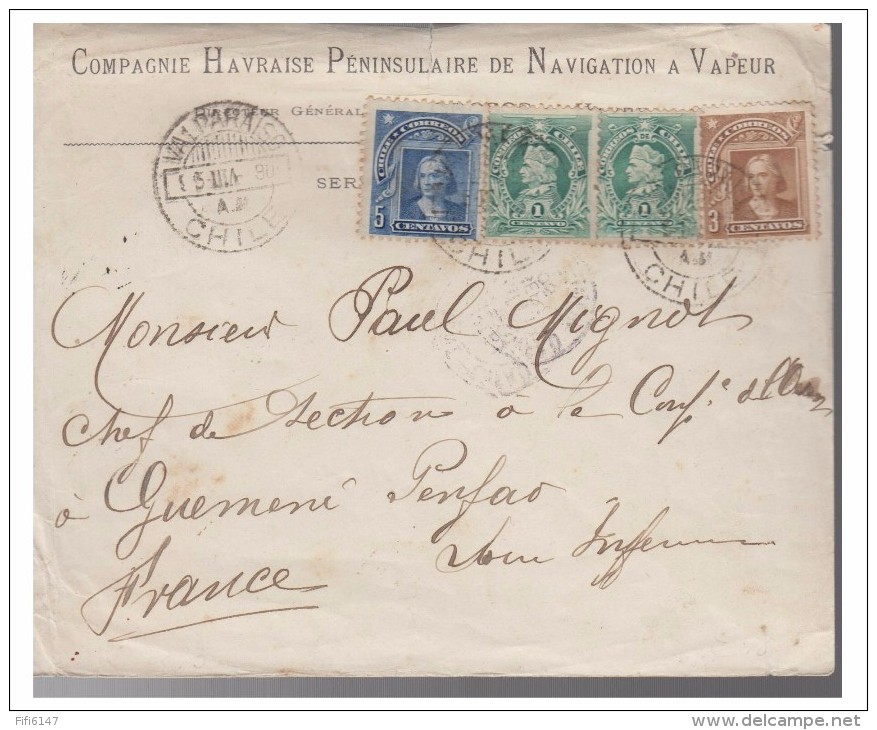 COMPAGNIE HAVRAISE PÉNINSULAIRE DE NAVIGATION A VAPEUR
GÉNÉRAL
SER
VALPARAISO
A.M
CHILE
CHILE CORREOS
5
CENTAVOS
CORREOS DE CHILE
1
CENTAVO
CORREOS DE CHILE
1
CENTAVO
CHILE CORREOS
3
CENTAVOS
CHILE
A.M
CHILE
Monsieur Paul Mignot
chef de section à la
à Guemené Penfao
Loire Inferieure
France
Fifi6147
www.delcampe.net